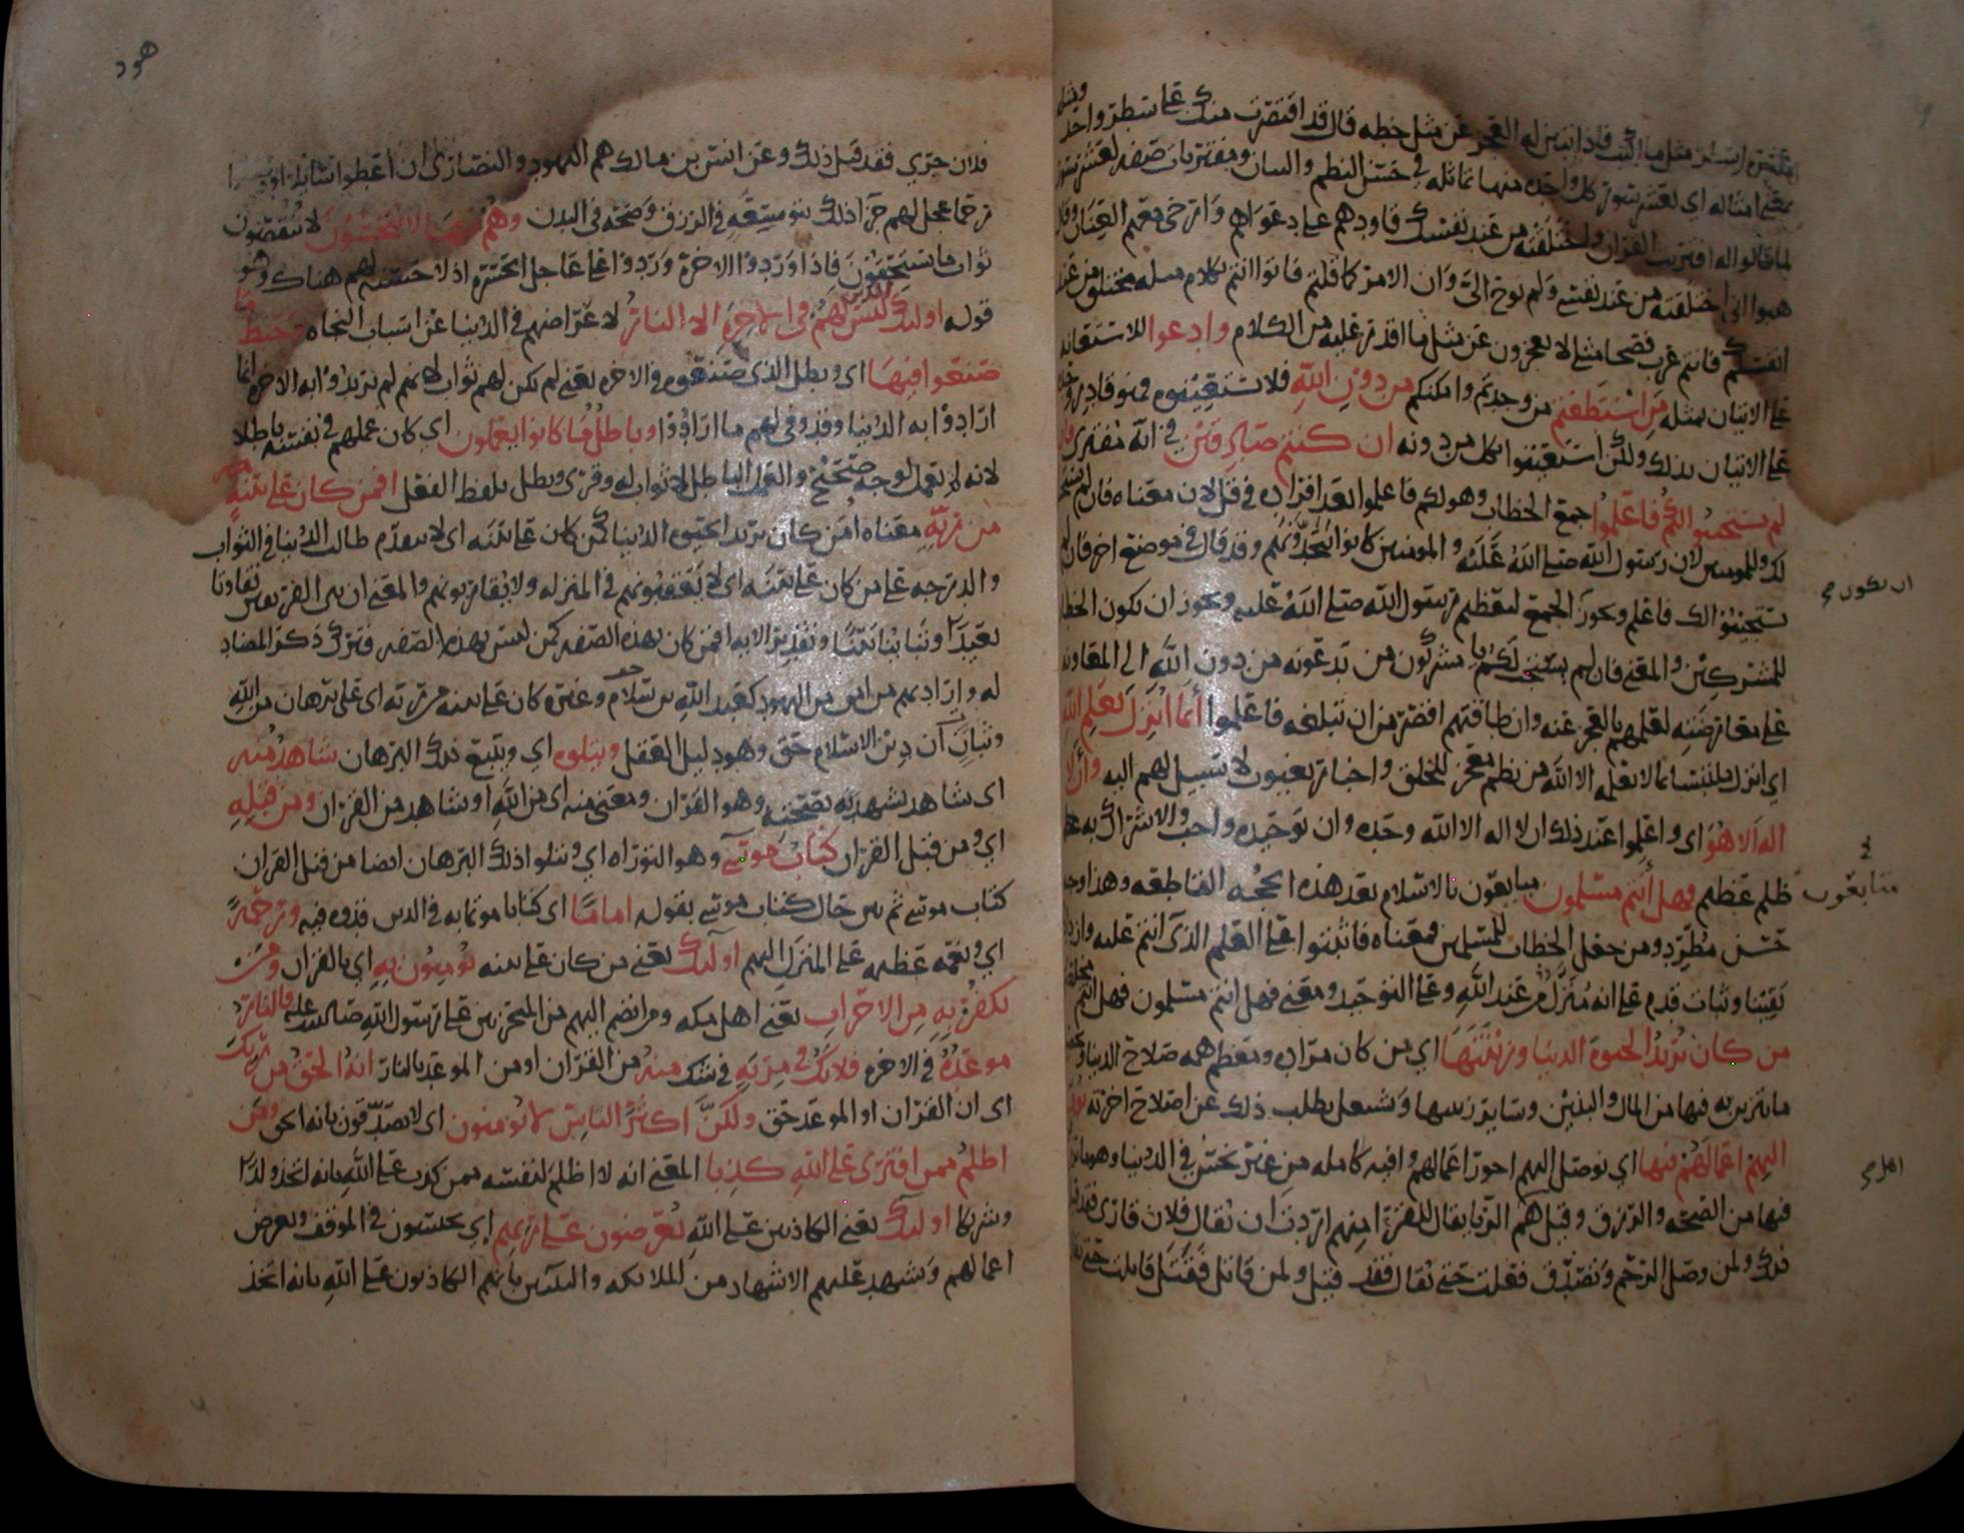 بعشرة اسطر مثل ما اكتب فاذا تبين له العجز عن مثل خطه قال قد اقتصرت منك على سطر واحد ومثله
بمعنى امثاله اي لعشر سور كل واحده منها مماثله في حسن النظم والبيان ومفتريات صفه لعشر سور
لما قالوا له افتريت القران واختلقته من عند نفسك قاودهم على دعواهم وارخى معهم العنان وقال
هبوا اني اختلقته من عند نفسي ولم يوح الي وان الامر كما قلتم فاتوا انتم بكلام مثله مختلق من عند
انفسكم فانتم عرب فصحا مثلي لا تعجزون عن مثل ما اقدر عليه من الكلام وادعوا للاستعانه
على الاتيان بمثله من استطعتم من وجدتم وامكنكم من دون الله فلا تستعينوه فهو قادر وحده
على الاتيان بذلك ولكن استعينوا بكل من دونه ان كنتم صادقين في انه مفترى فان
لم يستجيبوا لكم فاعلموا جمع الخطاب وهو لكم فاعلموا بعد افراده في قل لان معناه فان لم يستجيبوا
لك وللمومنين لان رسول الله صلى الله عليه والمومنين كانوا يتحدونهم وقد قال في موضع اخر فان لم
يستجيبوا لك فاعلم ويجوز الجمع لتعظيم رسول الله صلى الله عليه ويجوز ان يكون الخطاب
للمشركين والمعنى فان لم يستجب لكم يا مشركون من تدعونه من دون الله الى المعاونة
على معارضته لعلمهم بالعجز عنه وان طاقتهم اقصر من ان تبلغه فاعلموا انما انزل بعلم الله
اي انزل ملتبسا بما لا يعلمه الا الله من نظم معجز للخلق واخبار بغيوب لا سبيل لهم اليه وان لا
اله الا هو اي واعلموا عند ذلك ان لا اله الا الله وحده وان توحيده واجب والاشراك به
ظلم عظيم فهل انتم مسلمون مبايعون بالاسلام بعد هذه الحجه القاطعه وهذا وجه
حسن مطرد ومن جعل الخطاب للمسلمين فمعناه فاثبتوا على العلم الذي انتم عليه وازدادوا
يقينا وثبات قدم على انه منزل من عند الله وعلى التوحيد ومعنى فهل انتم مسلمون فهل انتم مخلصون
من كان يريد الحيوة الدنيا وزينتها اي من كان مراده ومعظم همه صلاح الدنيا
ما يتزين به فيها من المال والبنين وسائر زينتها وشغل بطلب ذلك عن اصلاح اخرته نوف
اليهم اعمالهم فيها اي نوصل اليهم اجور اعمالهم وافيه كامله من غير بخس في الدنيا وهو ما يرزقون
فيها من الصحه والرزق وقيل هم اهل الريا يقال للقرا منهم اردت ان يقال فلان قاري فقد قيل
ذلك ولمن وصل الرحم وتصدق فعلت حتى يقال فقد قيل ولمن قاتل فقتل قاتلت حتى يقال
ان يكون صح
متابعون
اهل صح
هود
فلان جري فقد قيل ذلك وعن انس بن مالك هم اليهود والنصارى ان اعطوا سائلا او وصلوا
رحما عجل لهم جزا ذلك بتوسعه في الرزق وصحه في البدن وهم فيها لا يبخسون لا ينقصون
ثواب ما يستحقون فاذا وردوا الاخرة وردوا على عاجل الحسرة اذ لا حسنه لهم هناك وهو
قوله اولئك الذين ليس لهم في الاخرة الا النار لاعراضهم في الدنيا عن اسباب النجاه وحبط ما
صنعوا فيها اي وبطل الذي صنعوه في الاخره يعني لم يكن لهم ثواب لانهم لم يريدوا به الاخره انما
ارادوا به الدنيا وقد وفى لهم ما ارادوا وباطل ما كانوا يعملون اي كان عملهم في نفسه باطلا
لانه لم يعمل لوجه صحيح والعمل الباطل لا ثواب له وقرى وبطل بلفظ الفعل افمن كان على بينة
من ربه معناه امن كان يريد الحيوة الدنيا كمن كان على بينه اي لا يتقدم طالب الدنيا في الثواب
والدرجه على من كان على بينه اي لا يعقبونهم في المنزله ولا يقاربونهم والمعنى ان بين الفريقين تفاوتا
بعيدا وتباينا بينا وتقدير الايه افمن كان بهذه الصفه كمن ليس بهذه الصفه فترك ذكر المضاد
له واراد بهم من امن من اليهود كعبد الله بن سلام وغيره كان على بينه من ربه اي على برهان من الله
وبيان ان دين الاسلام حق وهو دليل العقل ويتلوه اي ويتبع ذلك البرهان شاهد منه
اي شاهد يشهد به بصحته وهو القران ومعنى منه اي من الله او شاهد من القران ومن قبله
اي ومن قبل القران كتاب موسى وهو التوراه اي ويتلوا ذلك البرهان ايضا من قبل القران
كتاب موسى ثم بين حال كتاب موسى بقوله اماما اي كتابا موتما به في الدين قدوه فيه ورحمة
اي ونعمه عظيمه على المنزل اليهم اولئك يعني من كان على بينه يومنون به اي بالقران ومن
يكفر به من الاحزاب يعني اهل مكه ومن انضم اليهم من المتحزبين على رسول الله صلى الله عليه فالنار
موعده في الاخره فلا تك في مرية في شك منه من القران او من الموعد بالنار انه الحق من ربك
اي ان القران او الموعد حق ولكن اكثر الناس لا يومنون اي لا يصدقون بانه الحق ومن
اظلم ممن افترى على الله كذبا المعنى انه لا اظلم لنفسه ممن كذب على الله بانه اتخذ ولدا
وشريكا اولئك يعني الكاذبين على الله يعرضون على ربهم اي يحبسون في الموقف وتعرض
اعمالهم ويشهد عليهم الاشهاد من الملائكه والنبيين بانهم الكاذبون على الله بانه اتخذ